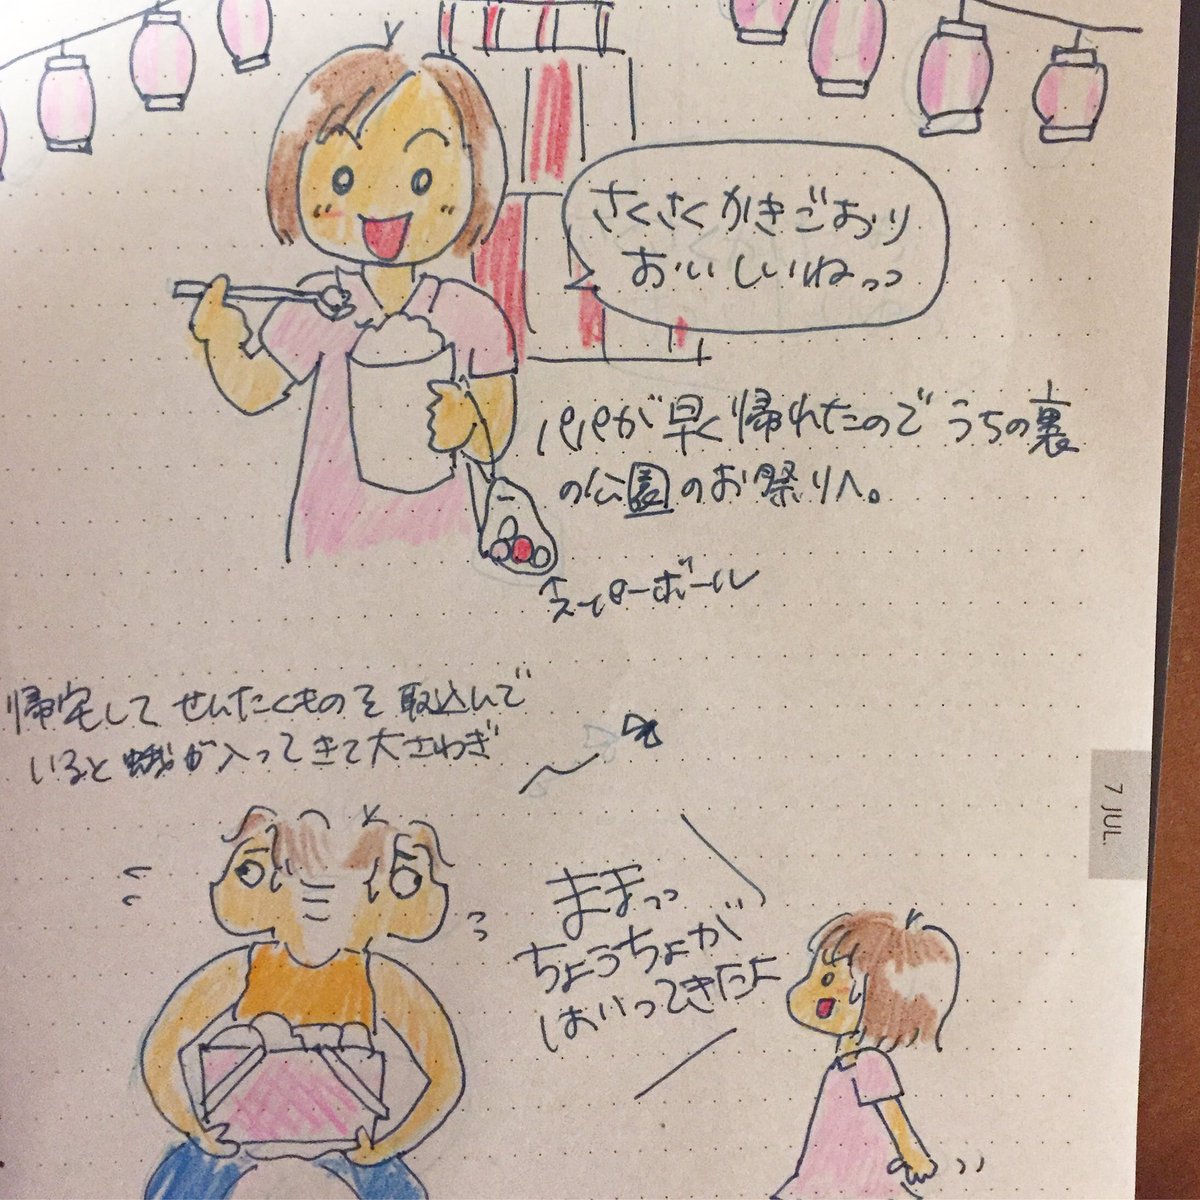 さくさくかきごおり
おいしいねっっ
パパが早く帰れたので うちの裏
の公園のお祭りへ。
↑スーパーボール
帰宅して せんたくものを 取込んで
いると 蛾が入ってきて大さわぎ
ままっっ
ちょうちょが
はいってきたよ
7 JUL.